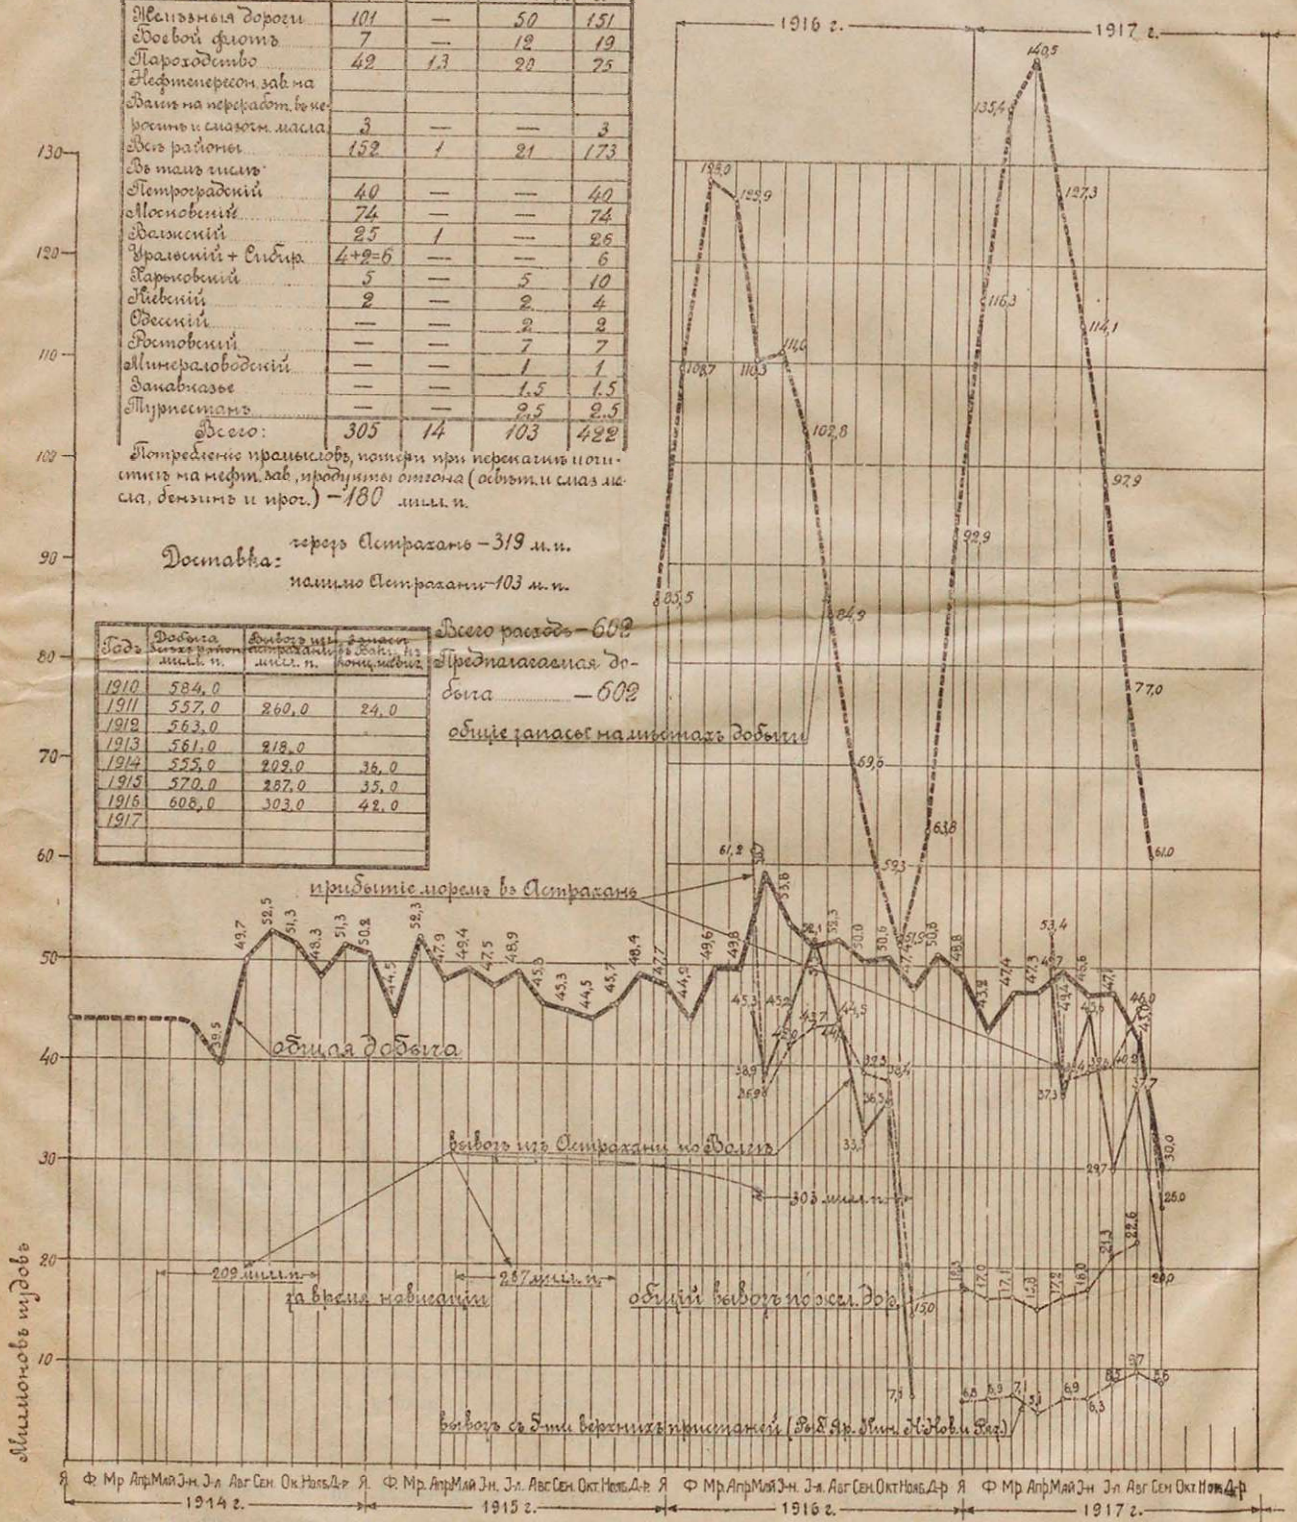 Желѣзныя дороги 101 — 50 151
Боевой флотъ 7 — 12 19
Пароходство 42 13 20 75
Нефтеперегон. зав. на
Волгѣ на переработ. въ ке-
росинъ и смазочн. масла 3 — — 3
Всѣ районы 152 1 21 173
Въ томъ числѣ:
Петроградскій 40 — — 40
Московскій 74 — — 74
Волжскій 25 1 — 26
Уральскій + Сибир. 4+2=6 — — 6
Харьковскій 5 — 5 10
Кіевскій 2 — 2 4
Одесскій — — 2 2
Ростовскій — — 7 7
Минераловодскій — — 1 1
Закавказье — — 1.5 1.5
Туркестанъ — — 2.5 2.5
Всего: 305 14 103 422
Потребленіе промысловъ, потери при перекачкѣ и очи-
сткѣ на нефт. зав., продукты отгона (освѣт. и смаз. ма-
сла, бензинъ и проч.) —180 милл. п.
Доставка:
черезъ Астрахань — 319 м. п.
помимо Астрахани — 103 м. п.
Всего расходъ — 602
Предполагаемая до-
быча — 602
Годъ Добыча всѣхъ районовъ милл. п. Вывозъ изъ Астрахани милл. п.
1910 584,0
1911 557,0 260,0 24,0
1912 563,0
1913 561,0 218,0
1914 555,0 209,0 36,0
1915 570,0 287,0 35,0
1916 608,0 303,0 42,0
1917
1916 г. 1917 г.
130
120
110
100
90
80
70
60
50
40
30
20
10
Милліоновъ пудовъ
85,5 108,7 128,0 125,9 110,3 111,0 102,8 84,9 69,6 59,3 51,9 63,8 92,9 116,3 135,4 140,5 127,3 114,1 97,9 77,0 61,0
общіе запасы на мѣстахъ добычи
прибытіе моремъ въ Астрахань
61,2
39,5 49,7 52,5 51,3 48,3 51,3 50,2 44,5 52,3 47,9 49,4 47,5 48,9 45,3 45,3 44,5 45,7 48,4 47,7 44,2 49,6 49,8
52,3 50,0 50,6 47,4 50,8 48,8 43,2 47,4 47,3 53,4
общая добыча
вывозъ изъ Астрахани по Волгѣ
45,3 45,2 38,9 36,9 43,7 44,5 39,3 38,4 36,5 33,1
37,3 29,7 46,0 37,7 30,0 26,0 20,0
303 милл. п.
209 милл. п.
287 милл. п.
за время навигаціи
общій вывозъ по жел. дор.
15,0 18,3 17,0 17,1 15,8 17,2 18,0 21,3 22,6
7,1 6,8 6,9 7,1 6,9 6,3 8,5 9,7 8,6
вывозъ съ 5-ти верхнихъ пристаней (Рыб. Яр. Кин. Н-Нов. и Ряз.)
Я Ф Мр Апр Май І-н. І-л Авг Сен. Ок. Нояб. Д-р Я. Ф. Мр. Апр Май І-н. І-л. Авг Сен. Окт. Нояб. Д-р. Я Ф Мр Апр Май І-н. І-л. Авг Сен. Окт Нояб. Д-р Я Ф Мр. Апр Май І-н І-л Авг Сен Окт Нояб Д-р
1914 г. 1915 г. 1916 г. 1917 г.